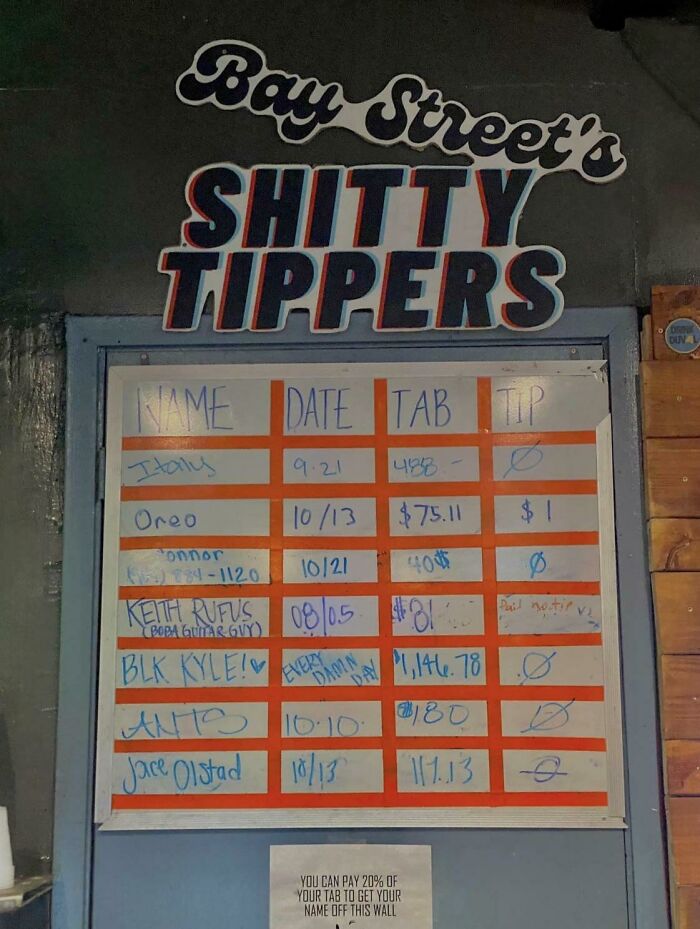 Bay Street's
SHITTY
TIPPERS
NAME DATE TAB TIP
9.21 488.- Ø
Oreo 10/13 $75.11 $1
onnor
884-1120 10/21 40$ Ø
KEITH RUFUS 08/05 $81 Paid no tip
(BOBA GUITAR GUY)
BLK KYLE!♥ EVERY DAMN DAY $1,146.78 Ø
ANTS 10.10. $180 Ø
Jace Olstad 10/13 117.13 Ø
YOU CAN PAY 20% OF
YOUR TAB TO GET YOUR
NAME OFF THIS WALL
DRINK
DUV L